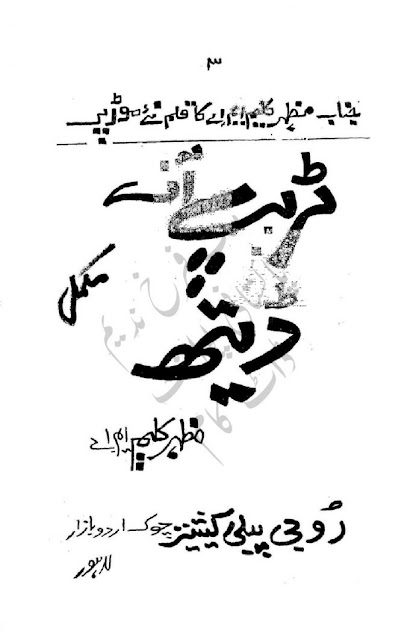 ۳
جناب مظہر کلیم ایم اے کا قلم نئے موڑ پر
ٹریپ آف
دیتھ
مکمل
مظہر کلیم ایم اے
روحی پبلی کیشنز چوک اردو بازار
لاہور